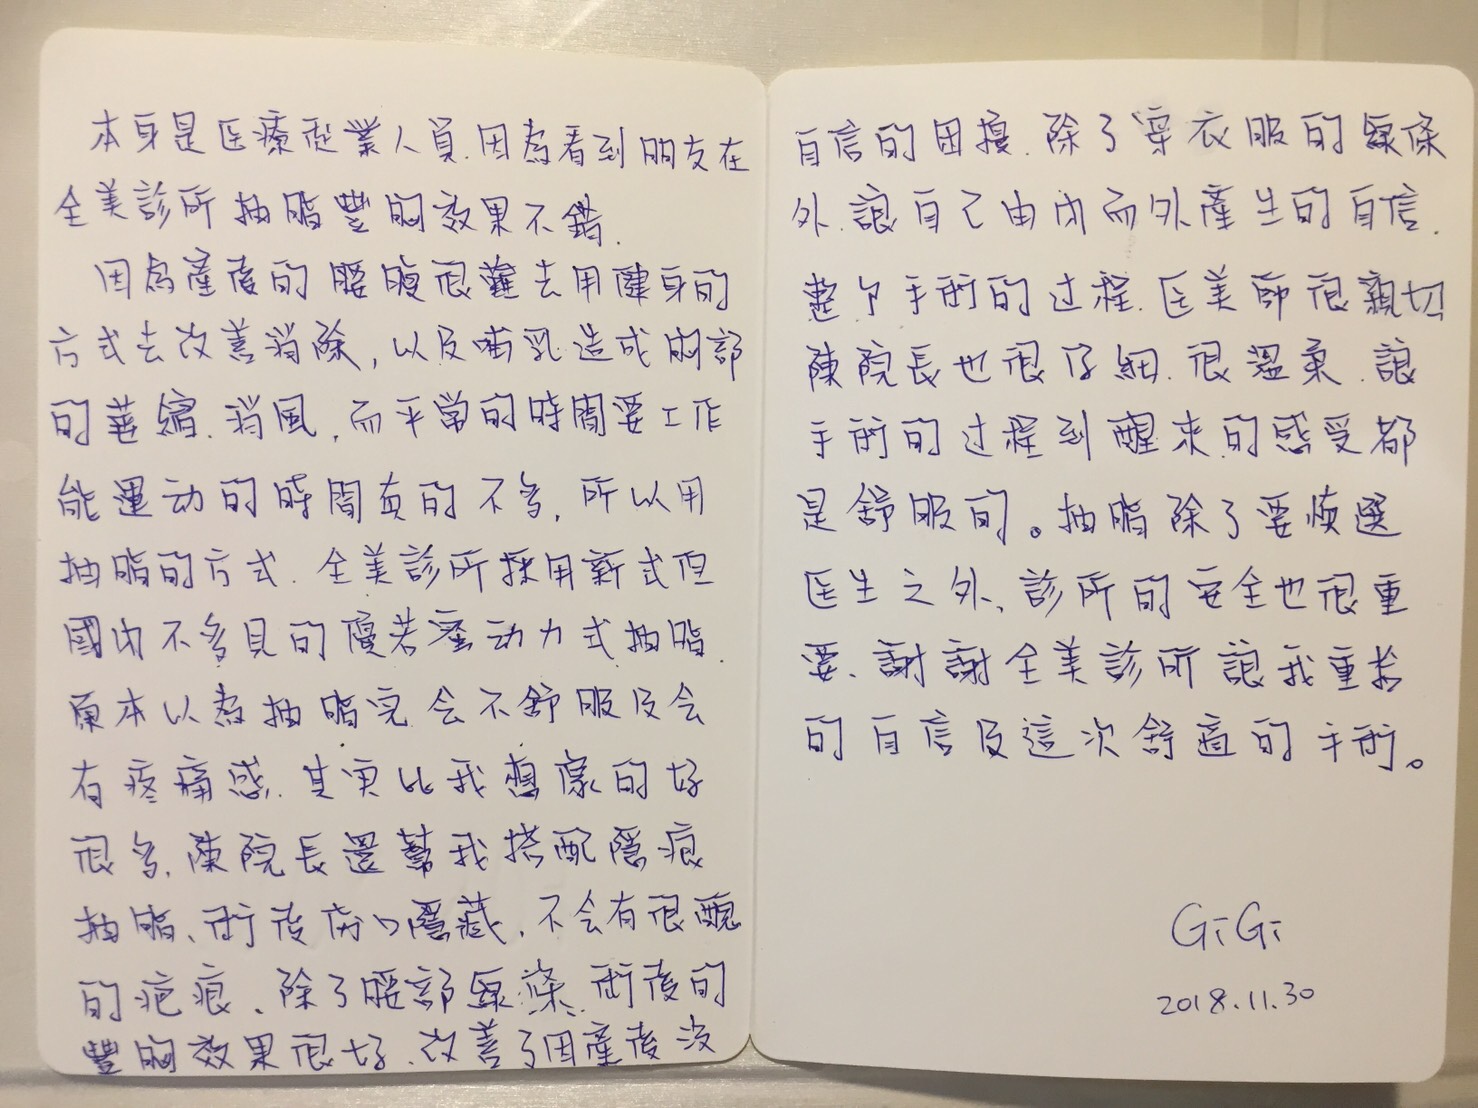 本身是医療從業人員.因為看到朋友在
全美診所抽脂豐胸效果不錯.
因為產後的腰腹很難去用健身的
方式去改善消除,以及哺乳造成胸部
的萎縮.消風,而平常的時間要工作
能運动的時間真的不多,所以用
抽脂的方式.全美診所採用新式但
國內不多見的優若塞动力式抽脂.
原本以為抽脂完会不舒服及会
有疼痛感.其实比我想像的好
很多.陳院長還幫我搭配隱痕
抽脂、術後傷口隱藏,不会有很醜
的疤痕、除了腰部線條.術後的
豐胸效果很好.改善了因產後沒
自信的困擾.除了穿衣服的線條
外.讓自己由內而外產生的自信.
整个手術的过程.医美師很親切
陳院長也很仔細.很溫柔.讓
手術的过程到醒來的感受都
是舒服的。抽脂除了要慎選
医生之外、診所的安全也很重
要.謝謝全美診所讓我重拾
的自信及這次舒適的手術。
GiGi
2018.11.30